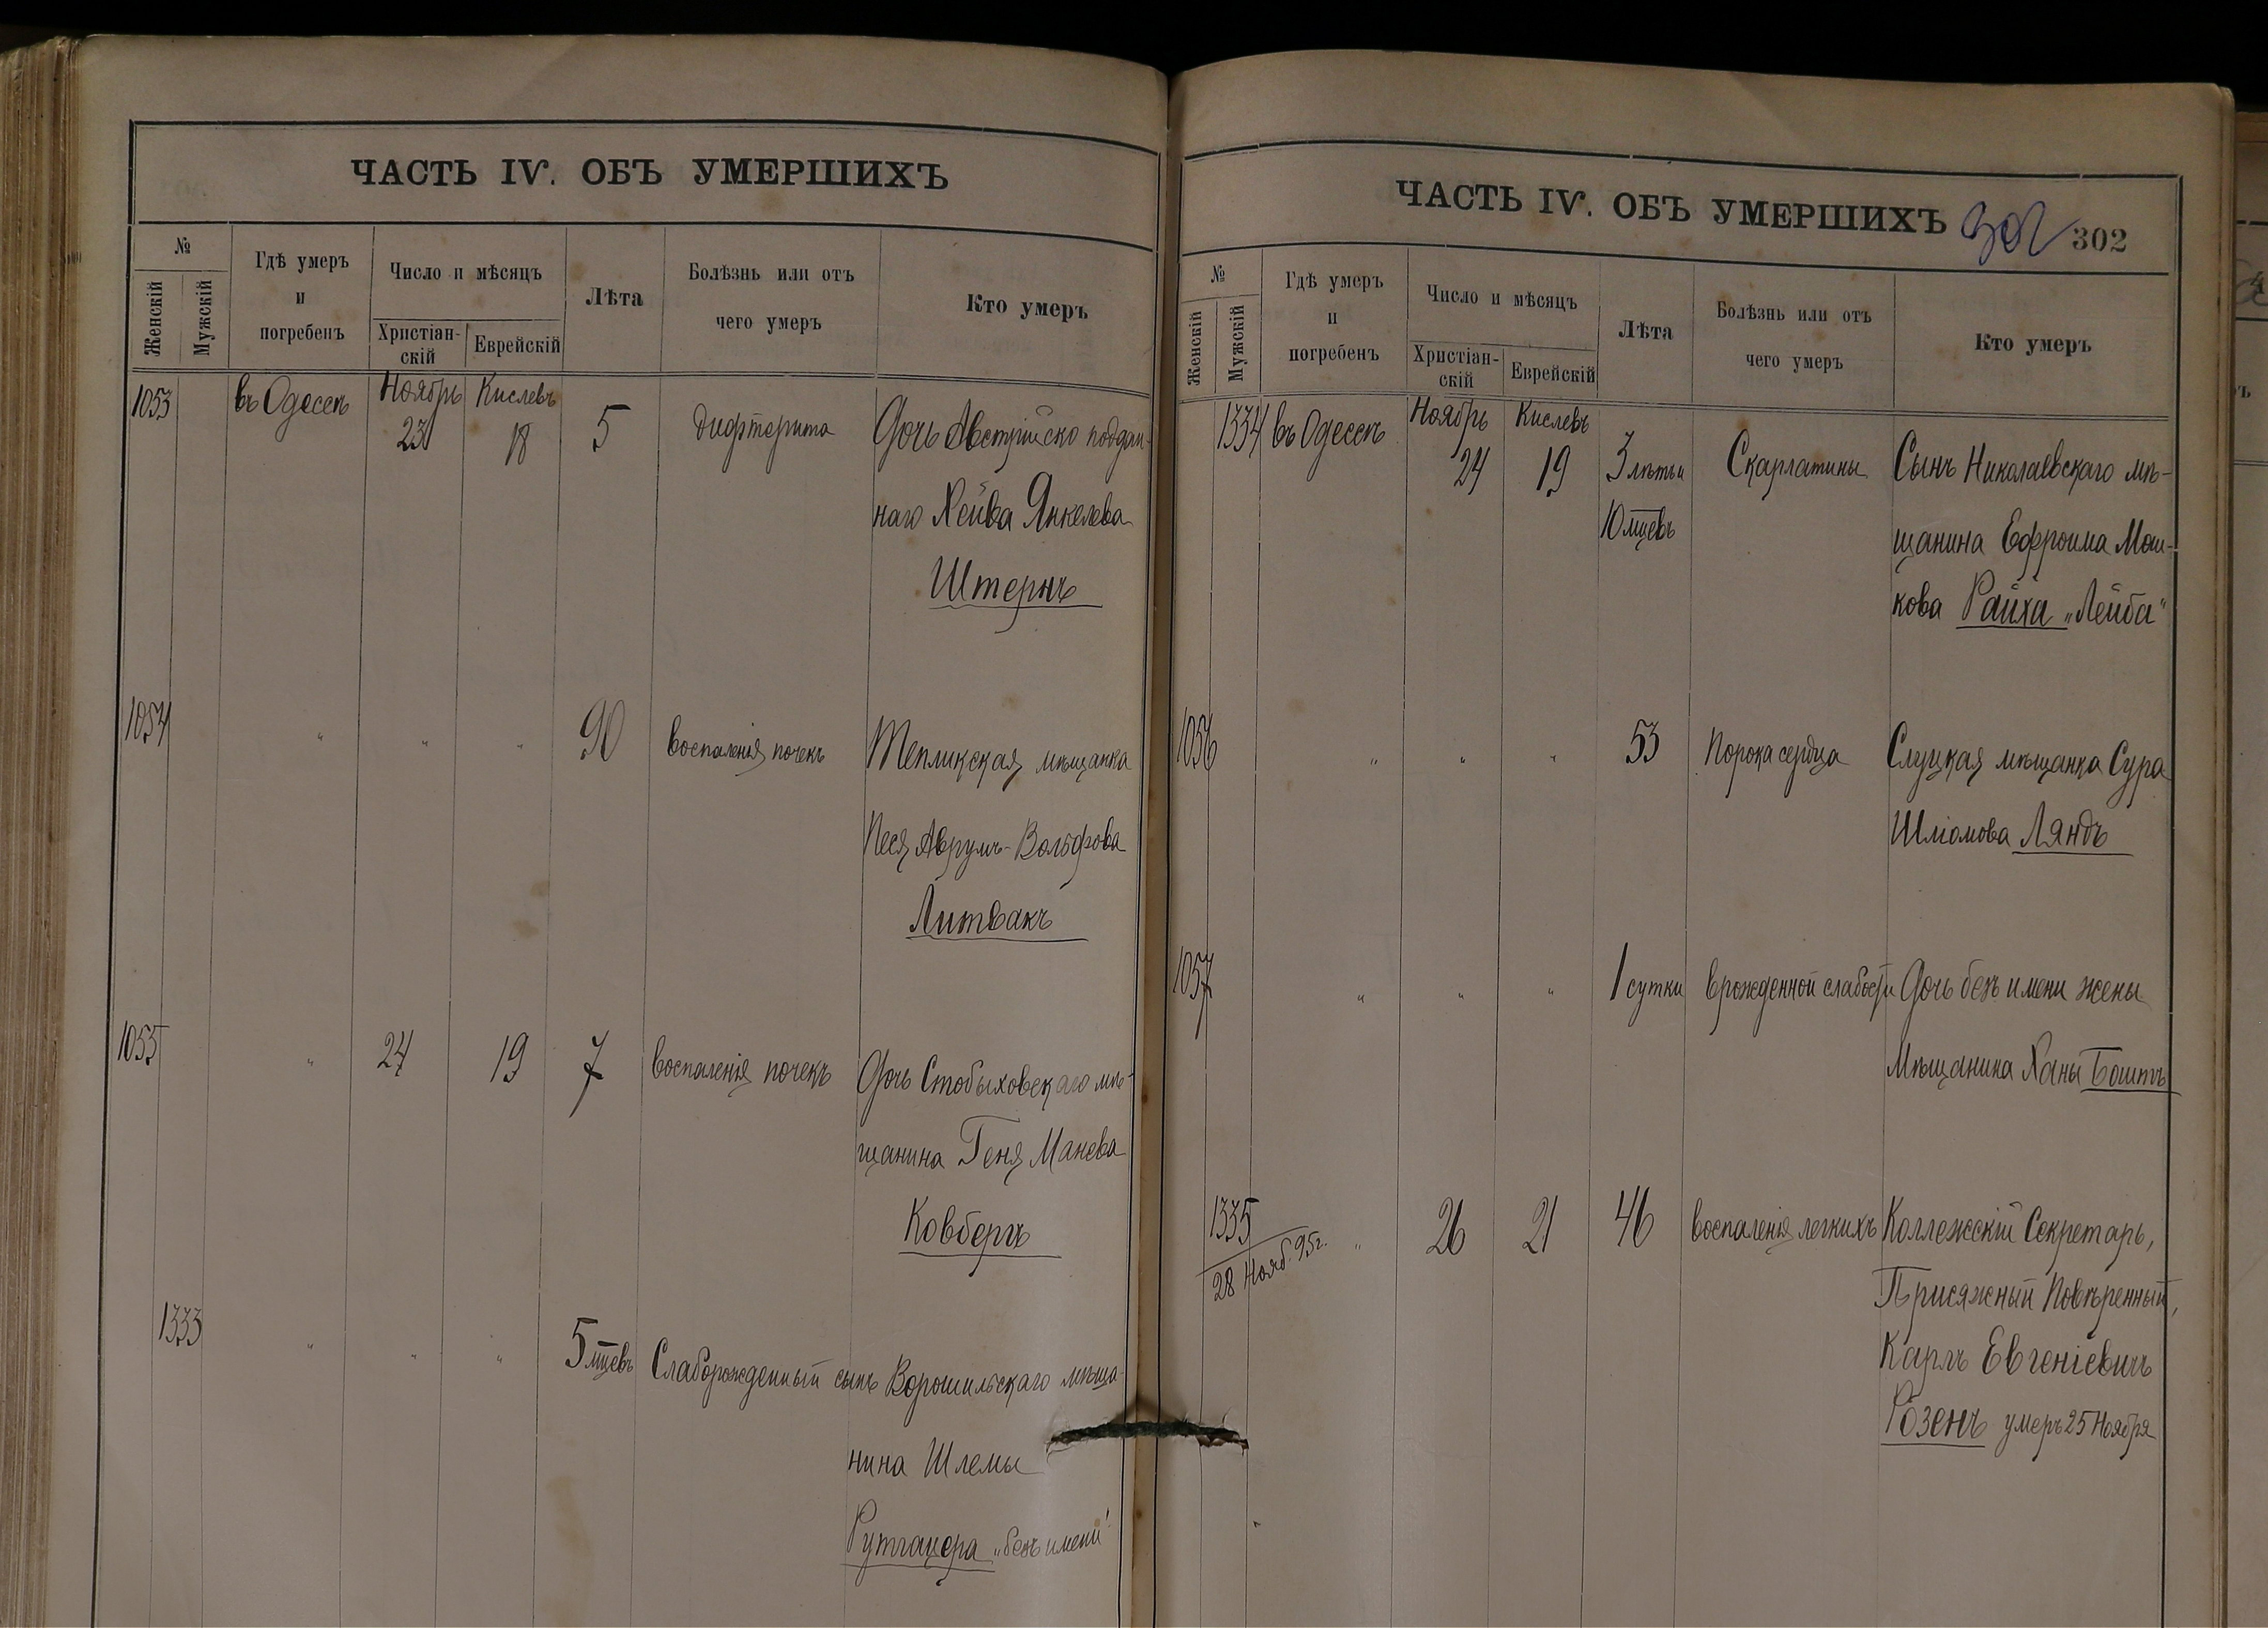 ЧАСТЬ IV. ОБЪ УМЕРШИХЪ
№
Женскій
Мужскій
Гдѣ умеръ
и
погребенъ
Число и мѣсяцъ
Христіан-
скій
Еврейскій
Лѣта
Болѣзнь или отъ
чего умеръ
Кто умеръ
1053 въ Одессѣ Ноябрь Кислевъ
23 18 5 дифтерита Дочь Австрійско поддан-
наго Хейва Янкелева
Штернъ
1054 " " " 90 воспаленія почекъ Тепликская мѣщанка
Песя Аврумъ-Вольфова
Литвакъ
1055 " 24 19 7 воспаленія почекъ Дочь Стобыховскаго мѣ-
щанина Геня Манева
Ковбергъ
1333 " " " 5 мцевъ Слаборожденный сынъ Ворошильскаго мѣща-
нина Шлемы
Рутгацера „безъ имени"
ЧАСТЬ IV. ОБЪ УМЕРШИХЪ 302 302
№
Женскій
Мужскій
Гдѣ умеръ
и
погребенъ
Число и мѣсяцъ
Христіан-
скій
Еврейскій
Лѣта
Болѣзнь или отъ
чего умеръ
Кто умеръ
1334 въ Одессѣ Ноябрь Кислевъ
24 19 3 лѣтъи Скарлатины Сынъ Николаевскаго мѣ-
10 мцевъ щанина Ефроима Мош-
кова Райха „Лейба"
1056 " " " 53 Порока сердца Слуцкая мѣщанка Сура
Шліомова Ляндъ
1057 " " " 1 сутки врожденной слабости Дочь безъ имени жены
Мѣщанина Ханы Боштъ
1335 " 26 21 46 воспаленія легкихъ Коллежскій Секретарь,
28 Нояб. 95г.
Присяжный Повѣренный,
Карлъ Евгеніевичъ
Розенъ умеръ 25 Ноября